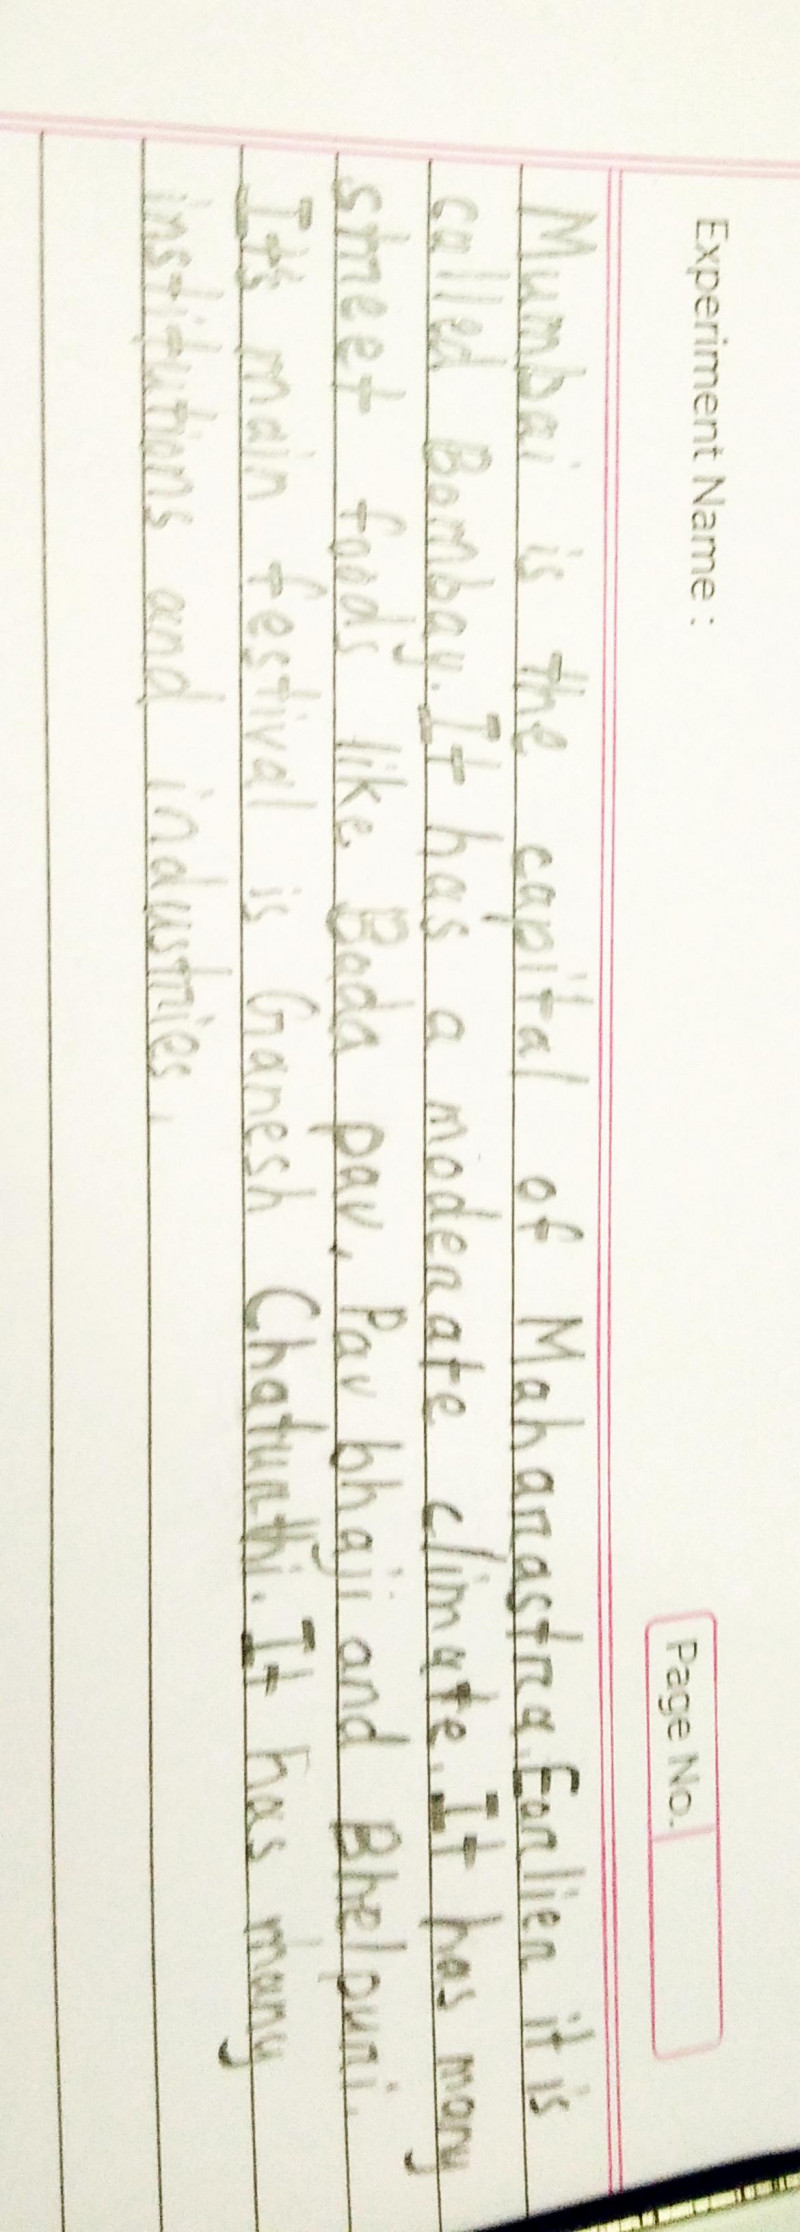 Experiment Name :
Page No.
Mumbai is the capital of Maharastra. Earlier it is
called Bombay. It has a moderate climate. It has many
street foods like Bada pav, Pav bhaji and Bhelpuri.
It's main festival is Ganesh Chaturthi. It has many
institutions and industries.